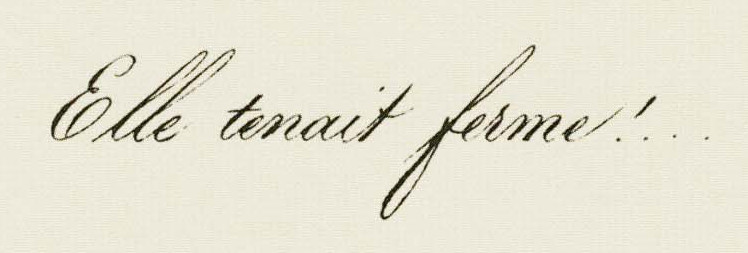 Elle tenait ferme!...